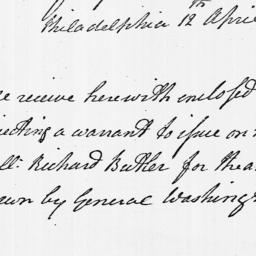 Philadelphia 12th April
receive herewith enclosed
a warrant to issue on
Richard Butler for the
by General Washing